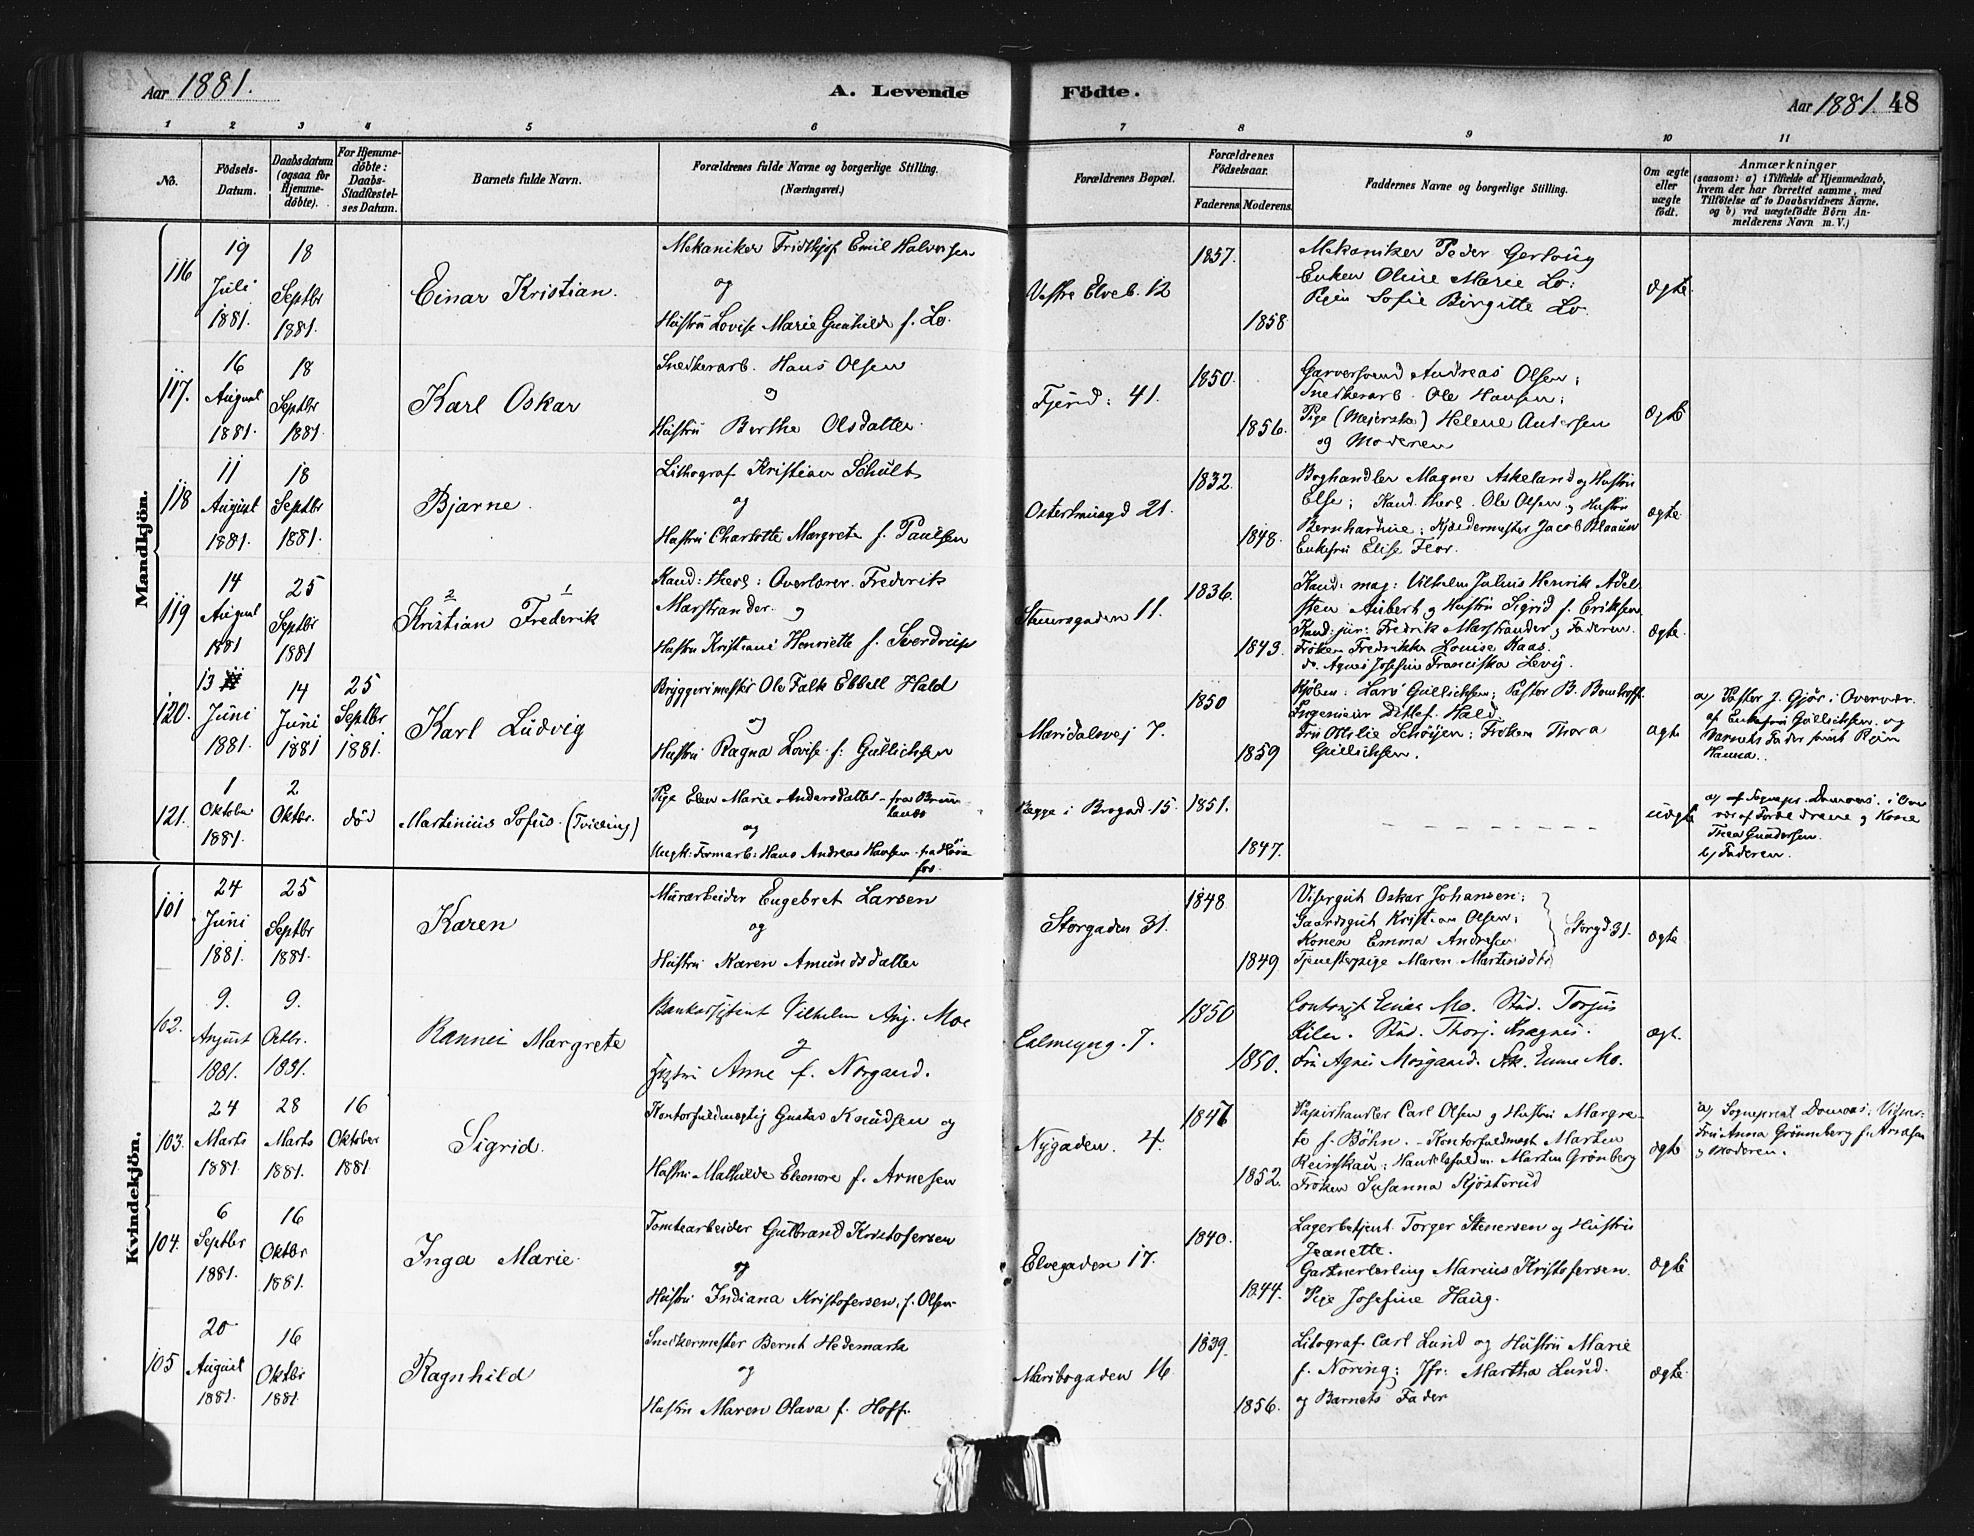 Aar 1881.
A. Levende Födte.
Aar 1881. 48
1 2 3 4 5 6 7 8 9 10 11
No.
Födsels-Datum.
Daabsdatum (ogsaa for Hjemme-døbte).
For Hjemme-døbte: Daabs-Stadfæstel-ses Datum.
Barnets fulde Navn.
Forældrenes fulde Navne og borgerlige Stilling. (Næringsvei.)
Forældrenes Bopæl.
Forældrenes Födselsaar.
Faderens. Moderens.
Faddernes Navne og borgerlige Stilling.
Om ægte eller uægte født.
Anmærkninger
(saasom: a) i Tilfælde af Hjemmedaab,
hvem der har forrettet samme, med
Tilföielse af to Daabsvidners Navne,
og b) ved uægtefödte Börn An-
melderens Navn m. V.)
Mandkjön.
116
19 Juli 1881.
18 Septbr 1881.
Einar Kristian.
Mekaniker Fridthjof Emil Halvorsen
og
Hustru Lovise Marie Gunhilde f. Lo.
Vestre Elveb. 12
1857.
1858
Mekaniker Peder
Enken Oline Marie Lo;
Pigen Sofie Birgitte Lo.
ægte
117.
16 August 1881.
18 Septbr 1881.
Karl Oskar
Snedkerarb. Hans Olsen
og
Hustru Berthe Olsdatter.
41.
1850.
1856.
Garversvend Andreas Olsen;
Snedkerarb. Ole Hansen;
Pige (Meierske) Helene Andersen
og Moderen
ægte
118
11 August 1881.
18 Septbr 1881.
Bjarne.
Lithograf Kristian Schult
og
Hustru Charlotte Margrete f. Paulsen
21.
1832.
1848.
Boghandler Magne Askeland og Hustru
Else; Kand. theol. Ole Olsen og Hustru
Bernhardine; Jacob
Enkefru Elise Flor.
ægte
119
14 August 1881
25 Septbr 1881
2 1
Kristian Frederik
Kand: theol: Overlærer Frederik
Marstrander. og
Hustru Kristiane Henriette f. Sverdrup
Stenersgaden 11.
1836.
1843.
Kand: mag: Vilhelm Julius Henrik Adel-
sten Aubert og Hustru Sigrid f. Eriksen
Kand: jur: Fredrik Marstrander og Faderen.
Frøken Fredrikke Louise Kaas.
do. Agnes Josefine Franciska Levy.
ægte.
120.
13 Juni 1881.
14 Juni 1881
25 Septbr 1881.
Karl Ludvig
Bryggerimester Ole Falk Ebbell Hald
og
Hustru Ragna Lovise f: Gullichsen
Maridalsvej 7.
1850
1859
Kjøbm: Lars Gullichsen; Pastor B.
Ingeniør Ditlef Hald
Fru Ottilie; Frøken Thora
Gullichsen.
ægte
a) Pastor J. Gjør i Overvær
af Enkefru Gullichsen og
Barnets Fader samt Pigen
Hanna..
121.
1 Oktober 1881.
2 Oktbr.
død
Martinius Sofus. (Tvilling)
Pige Elen Marie Andersdatter fra
og
Ungk: Formarb: Hans Andreas Hansen fra
Begge i Brogad 15.
1851.
1847.
uægte
a) af Sognepr. Domaas i
og Kone
Thea Gundersen.
b) Faderen.
Kvindekjön.
101
24 Juni 1881.
25 Septbr 1881.
Karen
Murarbeider Engebret Larsen
og
Hustru Karen Amundsdatter
Storgaden 31.
1848
1849
Visergut Oskar Johansen;
Gaardsgut Kristian Olsen;
Konen Emma Andresen
Tjenestepige Maren Martinsdtr
Storgd 31.
ægte
102.
9. August 1881.
9. Octbr. 1881.
Rannei Margrete
Bankassistent Vilhelm Aug. Moe
og
Hustru Anne f. Norgaard.
Calmeyerg. 7.
1850
1850.
Mo. Stud. Torjus
Stud. Thorj.
Fru Agnes. Frk. Emma Mo.
ægt.
103.
24 Marts 1881.
28 Marts 1881.
16 Oktober 1881.
Sigrid.
Kontorfuldmægtig Gustav Knudsen og
Hustru Mathilde Eleonore f. Arnesen
Nygaden. 4.
1847
1852.
Papirhandler Carl Olsen og Hustru Margre-
te f. Böhn. Kontorfuldmægt Marten
Handelsfuldm. Martin Grönberg
Frøken Susanna Kjøsterud
ægte
a) Sogneprest Domaas; Vidner:
Fru Anna Grönneberg f. Arnesen
og Moderen.
104.
6 Septbr 1881.
16 Oktbr 1881.
Inga Marie.
Tomtearbeider Gulbrand Kristofersen
og
Hustru Indiana Kristofersen f. Olsen
Elvegaden 17.
1840.
1844.
Lagerbetjent Torger Stenersen og Hustru
Jeanette.
Gartnerlærling Marius Kristofersen.
Pige Josefine Haug.
ægte
105
20 August 1881.
16 Oktbr 1881.
Ragnhild
Snedkermester Bernt Hedemark
og
Hustru Maren Olava f. Hoff.
Maribogaden 16
1839.
1856.
Litograf Carl Lund og Hustru Marie
f. Noring; Jfr: Martha Lund.
og Barnets Fader
ægte